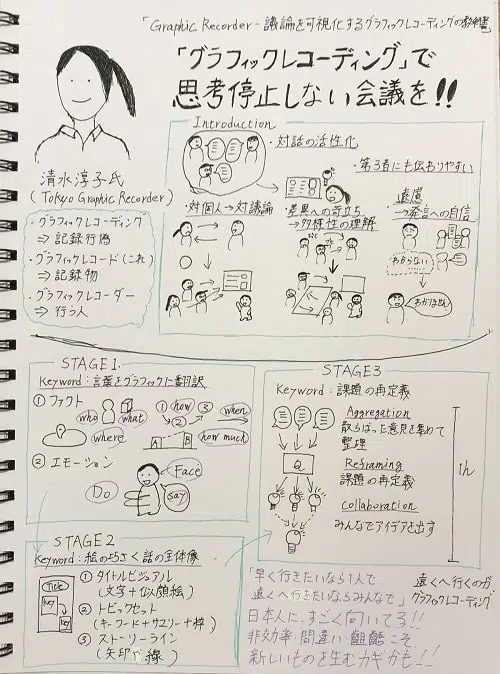 「Graphic Recorder - 議論を可視化するグラフィックレコーディングの教科書
「グラフィックレコーディング」で
思考停止しない会議を!!
清水淳子氏
(Tokyo Graphic Recorder)
・グラフィックレコーディング
⇒記録行偽
・グラフィックレコード(これ)
⇒記録物
・グラフィックレコーダー
⇒行う人
Introduction
・対話の活性化
・第3者にも伝わりやすい
・対個人→対議論
・差異への苛立ち
→多様性の理解
・遠慮
→発言への自信
わからない
わかりません
STAGE1
Keyword:言葉をグラフィックに翻訳
① ファクト
who
what
where
① how
②
③
when
A
B
how much
② エモーション
Do
Face
say
STAGE2
Keyword:絵の巧さく話の全体像
Title
Key
Key
① タイトルビジュアル
(文字+似顔絵)
② トピックセット
(キーワード+サマリー+枠)
③ ストーリーライン
(矢印 線)
STAGE3
Keyword:課題の再定義
Aggregation
散らばった意見を集めて
整理
Q
Reframing
課題の再定義
Collaboration
みんなでアイデアを出す
1h
「早く行きたいなら1人で
遠くへ行きたいならみんなで」
遠くへ行くのが
グラフィックレコーディング
日本人に、すごく向いてる!!
非効率・間違い・齟齬こそ
新しいものを生むカギかも!!